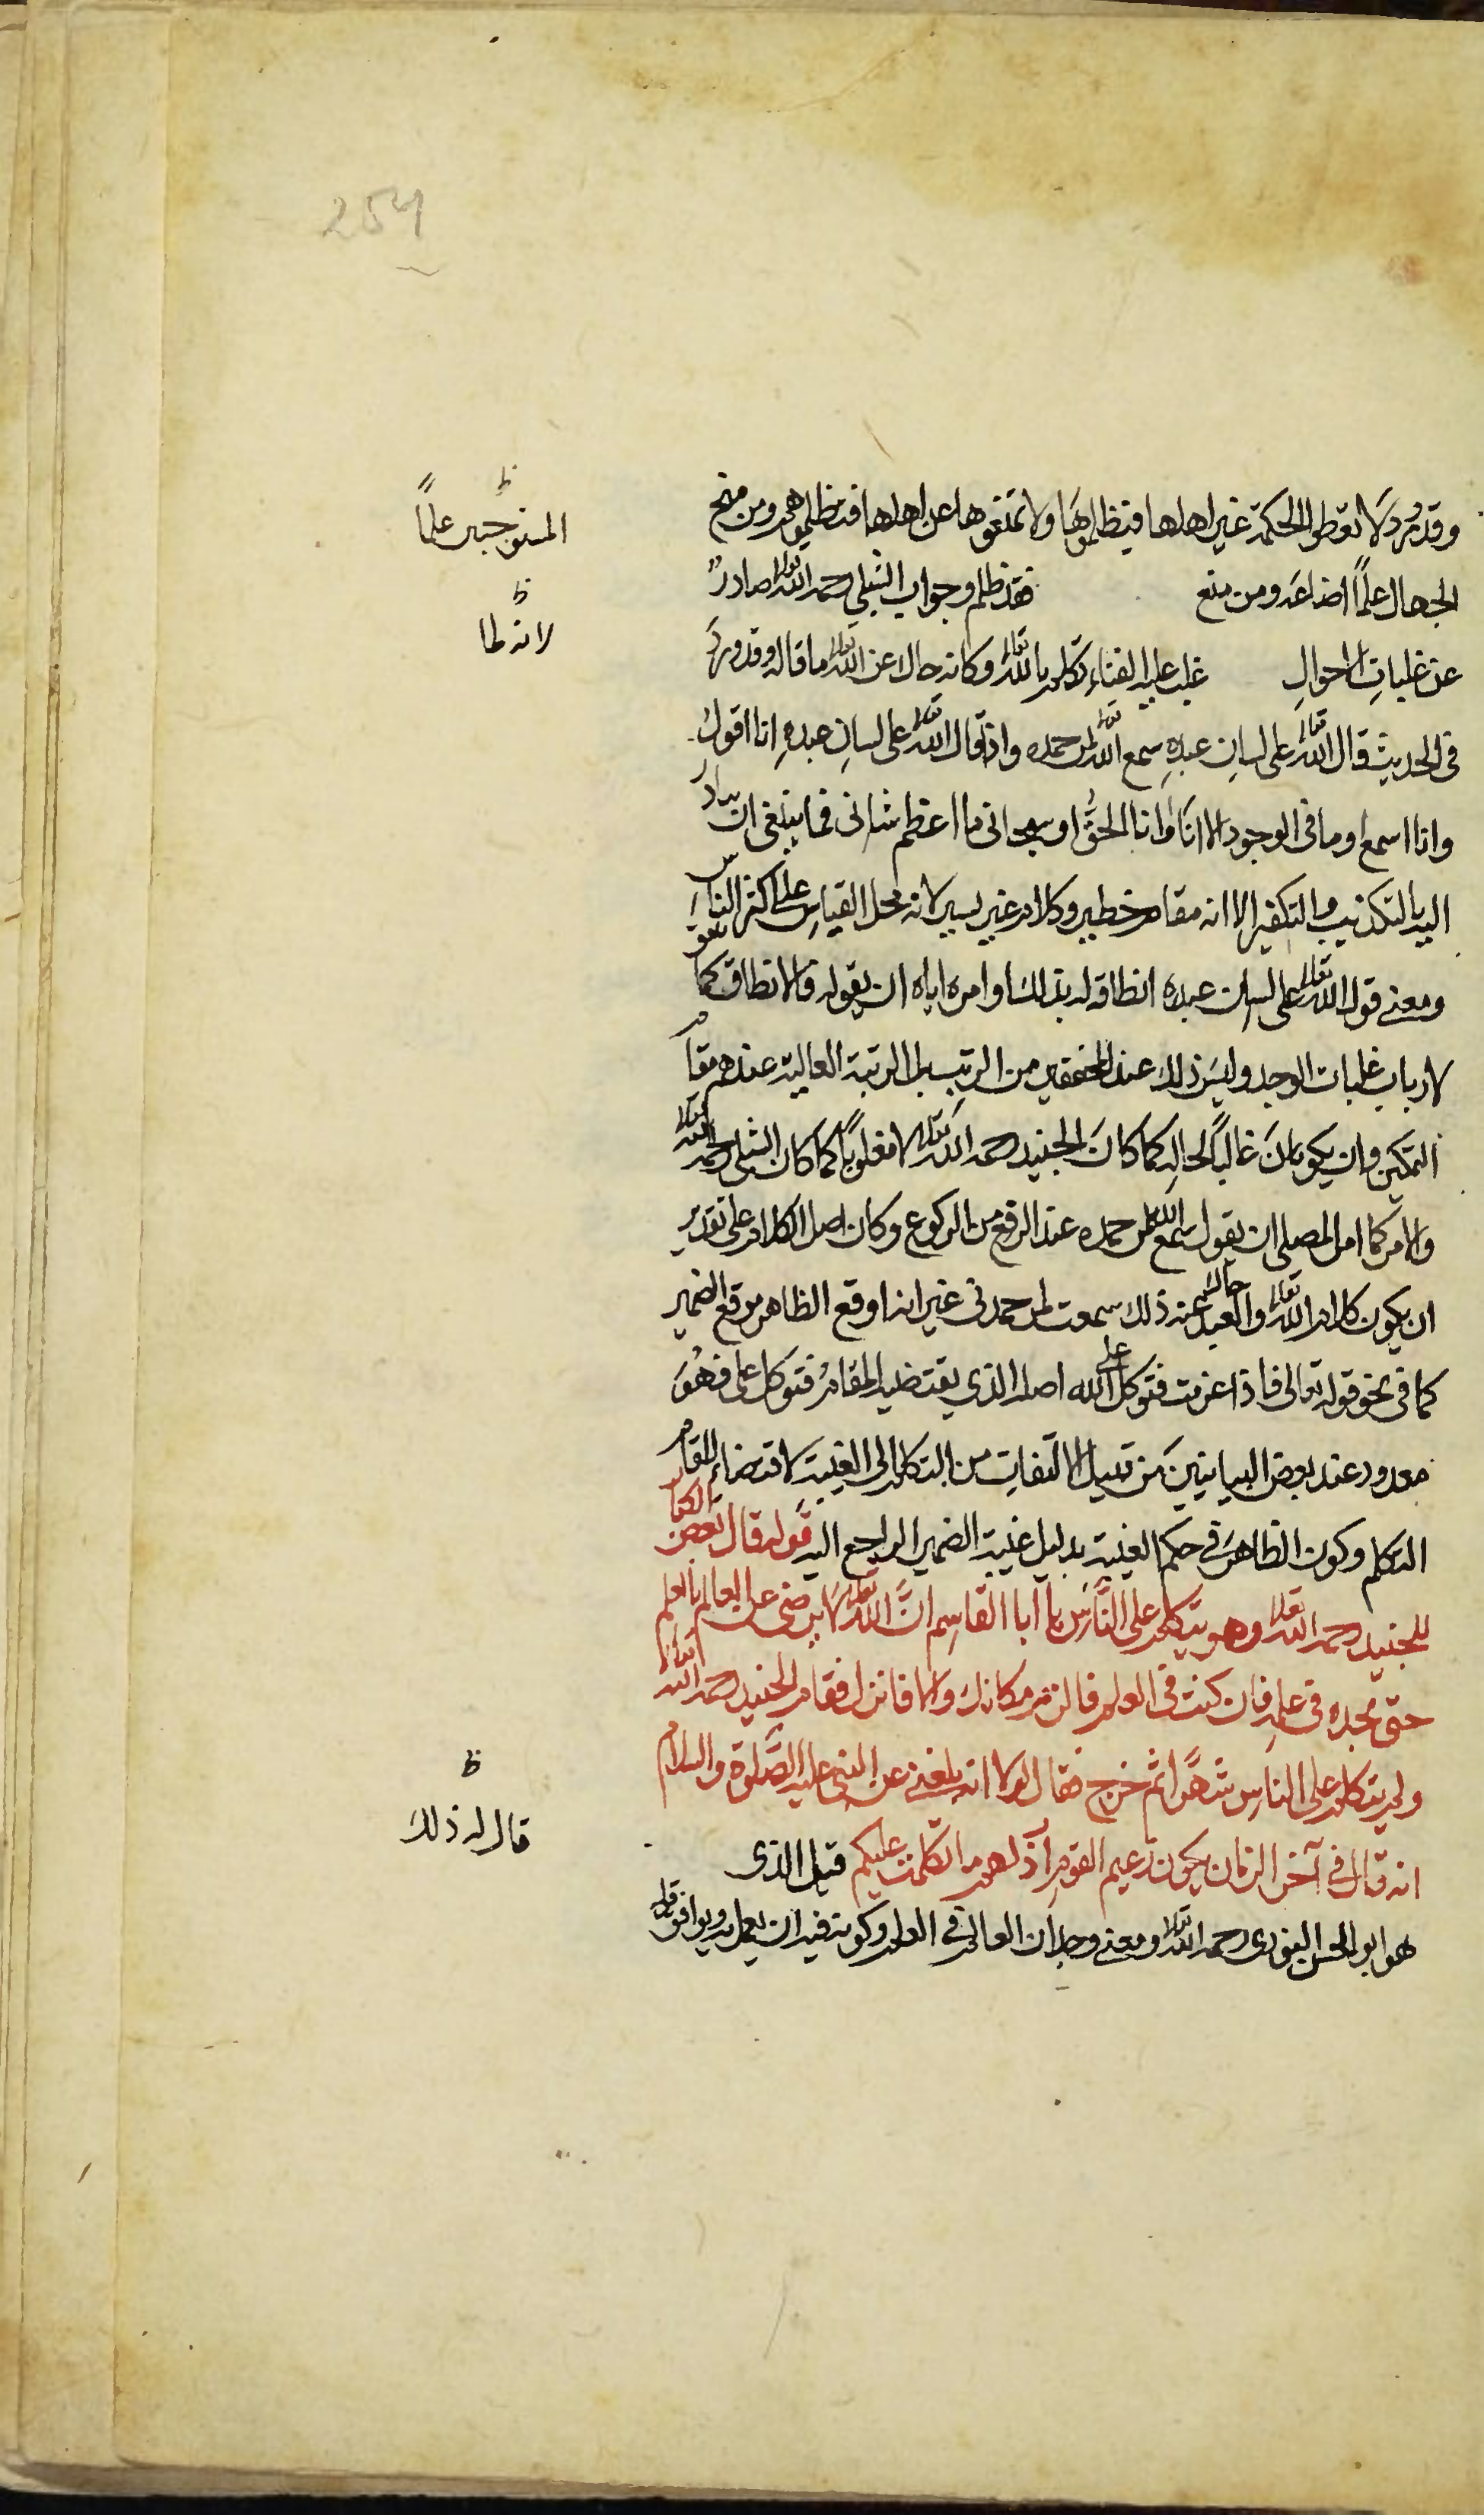 254
وقد ورد لا تعطوا الحكمة غير اهلها فتظلموها ولا تمنعوها عن اهلها فتظلموهم ومن منح
الجهال علماً اضاعه ومن منع فقد ظلم وجواب الشبلي رحمه الله تعالى صادرٌ
ظ المستوجبين علماً
عن غلباتِ الاحوالِ غلب عليه الفناء تكلم بالله تعالى وكانه حاك عن الله تعالى ما قاله وقد ورد
ظ لانه لما
فى الحديث قال الله تعالى على لسانِ عبدهِ سمع الله تعالى لمن حمده واذا قال الله تعالى على لسانِ عبدهِ انا اقول
وانا اسمع او ما فى الوجود الا انا وانا الحقُّ او سبحانى ما اعظم شانى فما ينبغى ان يبادر
اليه بالتكذيب والتكفير الا انه مقام خطير وكلام غير يسير لانه محل القياسِ على اكثر الناس
ومعنى قول الله تعالى على لسان عبده انطاقه له بذلك او امره اياه ان يقوله فالانطاق كما يقع
لارباب غلبات الوجد وليس ذلك عند المحققين من الرتب بل الرتبة العالية عندهم مقام
التمكين وان يكون غالباً لحاله كما كان الجنيد رحمه الله تعالى لا مغلوباً كما كان الشبلى رحمه الله تعالى
والامر كما امر المصلى ان يقول سمع الله لمن حمده عند الرفع من الركوع وكان اصل الكلام على تقدير
ان يكون كلام الله تعالى والعبد حاك عنه ذلك سمعت لمن حمدنى غير انه اوقع الظاهر موقع الضمير
كما فى نحو قوله تعالى فاذا عزمت فتوكل على الله اصله الذى يقتضيه المقامُ فتوكل على فهُوَ
معدود عند بعض البيانيين من قبيل الالتفات من التكلم الى الغيبة لاقتضاء المقام
التكلم وكون الظاهر فى حكم الغيبة بدليل غيبة الضمير الراجع اليه قوله قال بعض الكبار
للجنيد رحمه الله تعالى وهو يتكلم على الناس يا ابا القاسم انَّ الله تعالى لا يرضى عن العالم بالعلم
حتى يجده فى علمهِ فان كنت فى العلم فالزم مكانك والا فانزل فقام الجنيد رحمه الله تعالى
ولم يتكلم على الناس شهراً ثم خرج فقال لولا انه بلغنى عن النبى عليه الصَّلوة والسلام
انه قال فى آخر الزمان يكون زعيم القوم ارذلهم ما تكلمت عليكم قيل الذى
ظ قال له ذلك
هو ابو الحسن النورى رحمه الله تعالى ومعنى وجدان العالم فى العلم وكونه فيه ان يعمل به ويوافق